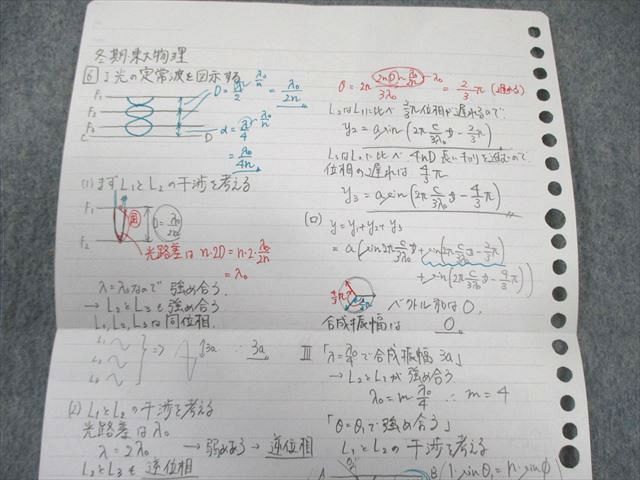 冬期東大物理
6 I 光の定常波を図示する
F₁
F₂
F₃
C
D
D = λ₀/n / 2 = λ₀/2n
d = λ₀/n / 4
= λ₀/4n
(1) まずL₁とL₂の干渉を考える
F₁
F₂
D = λ₀/2n
光路差は n·2D = n·2·λ₀/2n
= λ₀
λ = λ₀なので 強め合う.
→ L₂とL₃も強め合う
L₁, L₂, L₃は同位相.
L₁
L₂
L₃
⇒ 3a ∴ 3a
(2) L₁とL₂の干渉を考える
光路差はλ₀
λ = 2λ₀ → 弱めあう → 逆位相
L₂とL₃も 逆位相
2/3 π (遅れる)
L₂はL₁に比べ 2/3 π 位相が遅れるので
y₂ = a sin(2π c/3λ₀ t - 2/3 π)
位相の遅れは 4/3 π
y₃ = a sin(2π c/3λ₀ t - 4/3 π)
(ロ) y = y₁ + y₂ + y₃
= a { sin 2π c/3λ₀ t + sin(2π c/3λ₀ t - 2/3 π)
+ sin(2π c/3λ₀ t - 4/3 π) }
ベクトル和は 0,
合成振幅は 0
III 「λ = λ₀/4 で合成振幅 3a」
→ L₂とL₁が強め合う
λ₀ = m λ₀/4 ∴ m = 4
「θ = θ₁で強め合う」
L₁とL₂の干渉を考える
1·sinθ₁ = n·sinφ